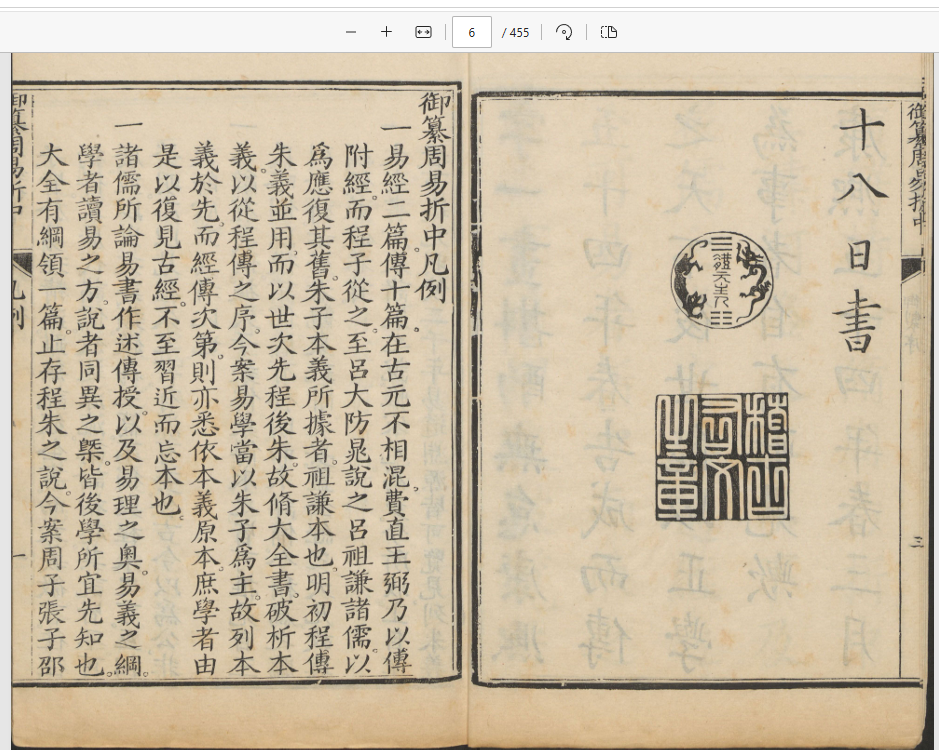 6
/ 455
十八日書
體元主人
稽古右文之章
三
御纂周易折中
御纂周易折中凡例
一易經二篇傳十篇在古元不相混費直王弼乃以傳
附經而程子從之至呂大防晁說之呂祖謙諸儒以
爲應復其舊朱子本義所據者祖謙本也明初程傳
朱義並用而以世次先程後朱故脩大全書破析本
義以從程傳之序今案易學當以朱子爲主故列本
義於先而經傳次第則亦悉依本義原本庶學者由
是以復見古經不至習近而忘本也
一諸儒所論易書作述傳授以及易理之奧易義之綱
學者讀易之方說者同異之槩皆後學所宜先知也
大全有綱領一篇止存程朱之說今案周子張子邵
御纂周易折中
凡例
一